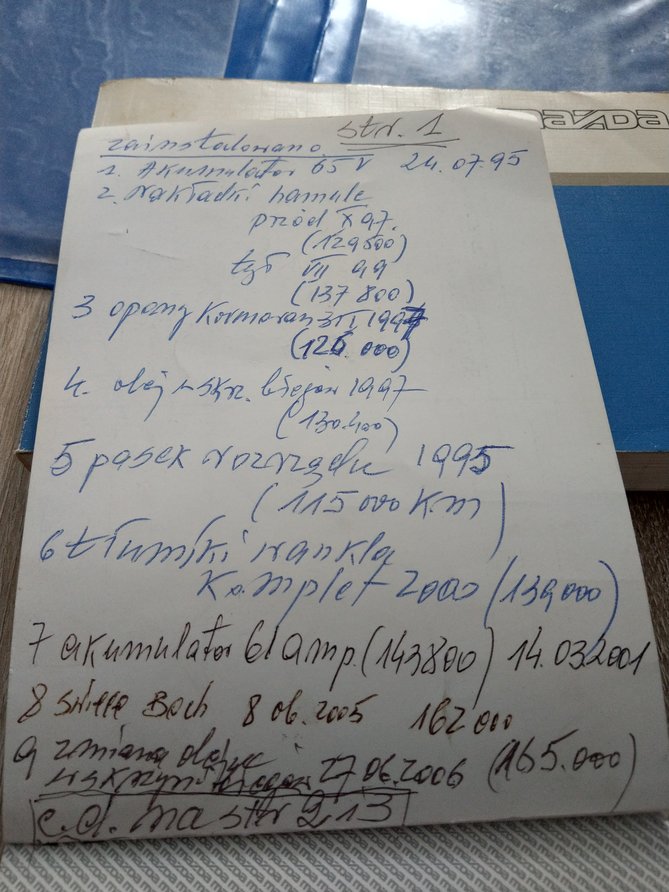 mazda
str. 1
zainstalowano
1. Akumulator 65 V 24.07.95
2. Nakładki hamulc
przód X 97.
(129500)
tył VII 99
(137 800)
3 opony Kormoran 3 1997
(126.000)
4. olej w skrz. biegów 1997
(130.400)
5 pasek rozrządu 1995
(115 000 km)
6 tłumiki
Komplet 2000 (139000)
7 akumulator 61 amp. (143800) 14.03.2001
8 świece 8 06.2005 162 000
9 zmiana oleju
w skrzyni biegów 27.06.2006 (165.000)
c.d. na str 2 i 3